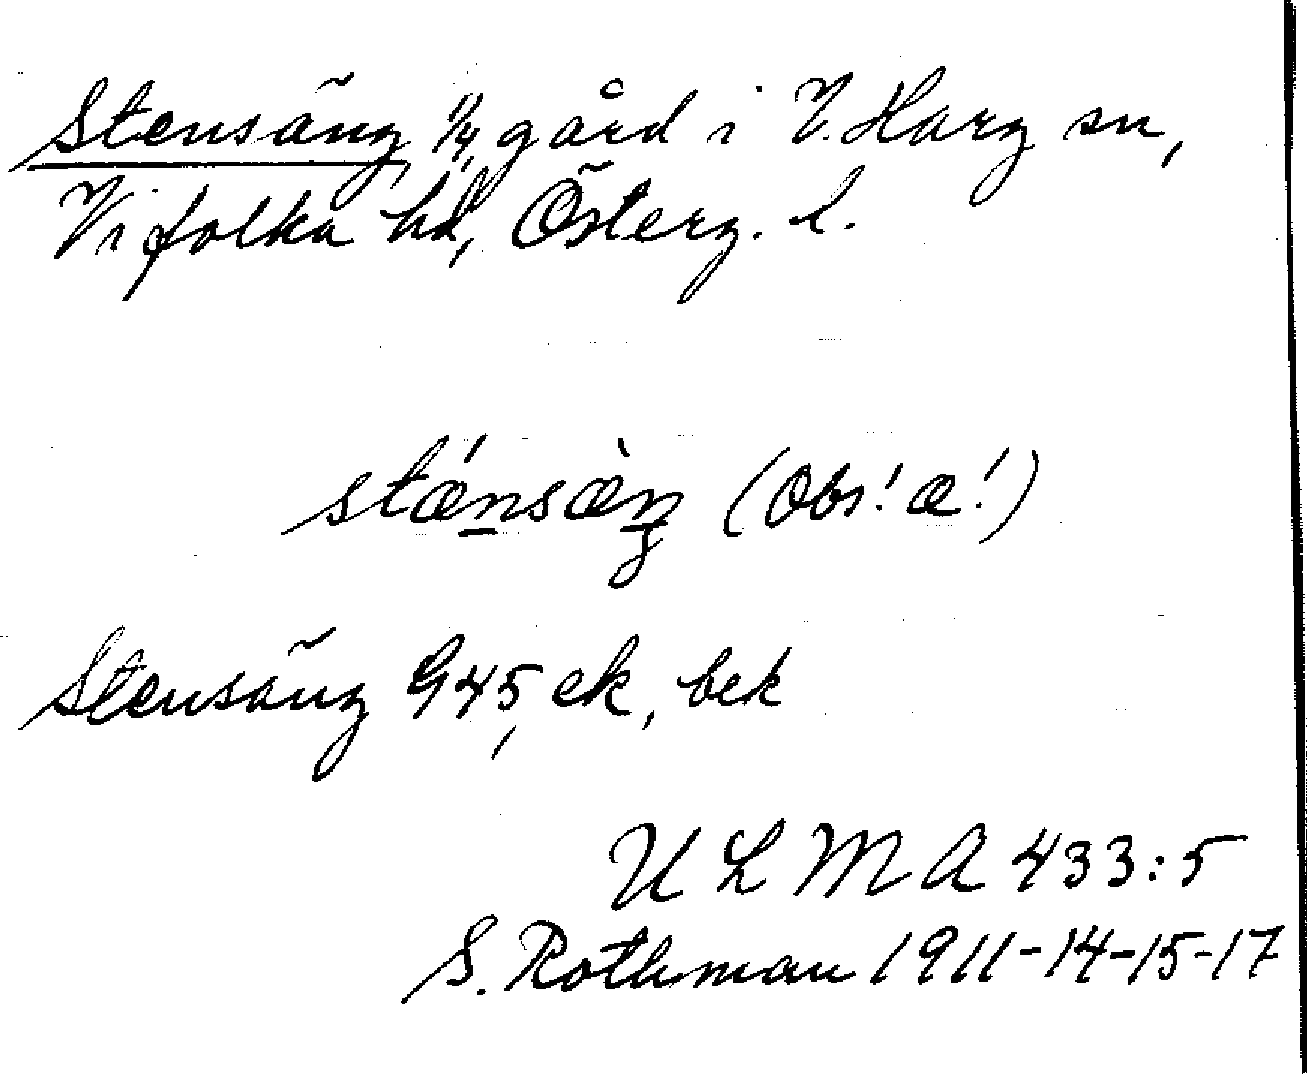 Stensäng, 1/4 gård i V. Harg sn,
Vifolka hd, Österg. l.
stǽnsæ̀ŋ (Obs! æ!)
Stensäng G45, ek, bek
ULMA 433:5
S. Rothman 1911-14-15-17